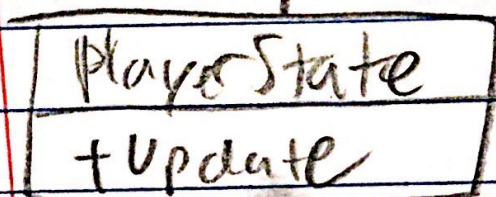 PlayerState
+ Update